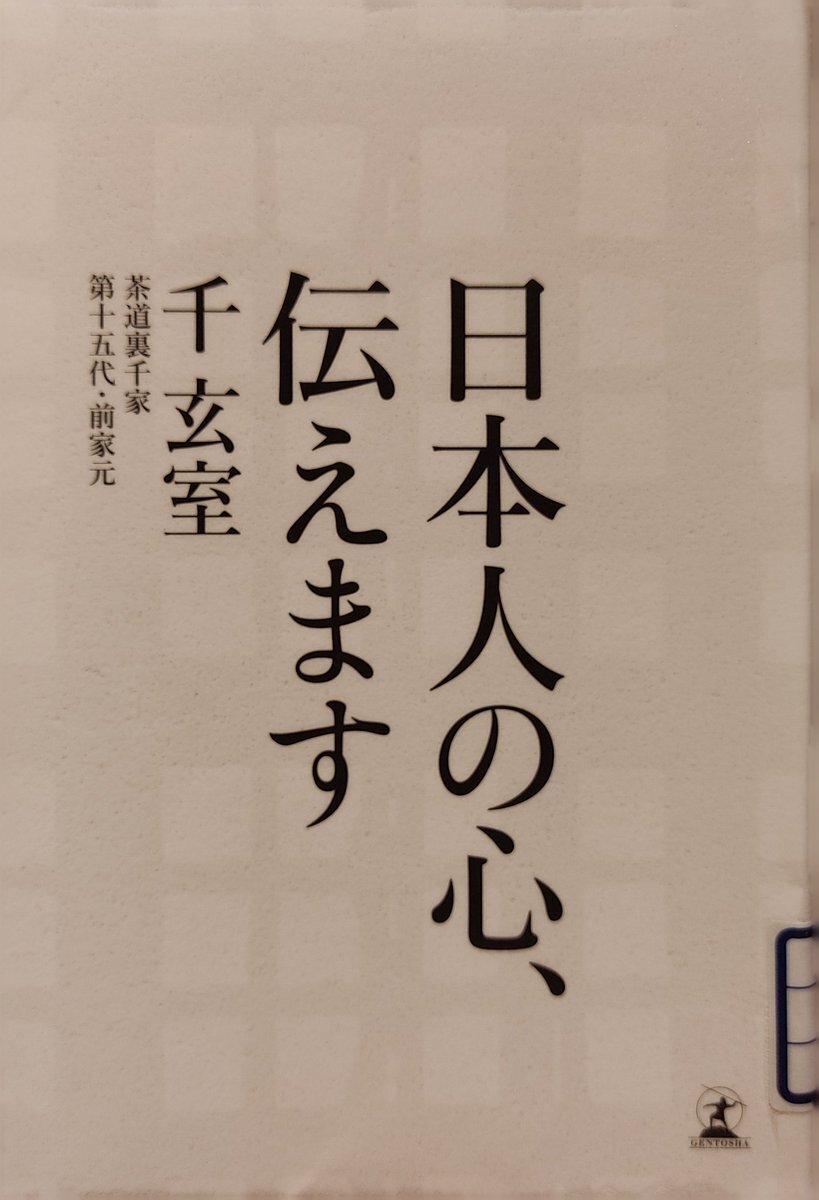 日本人の心、
伝えます
千 玄室
茶道裏千家
第十五代・前家元
GENTOSHA